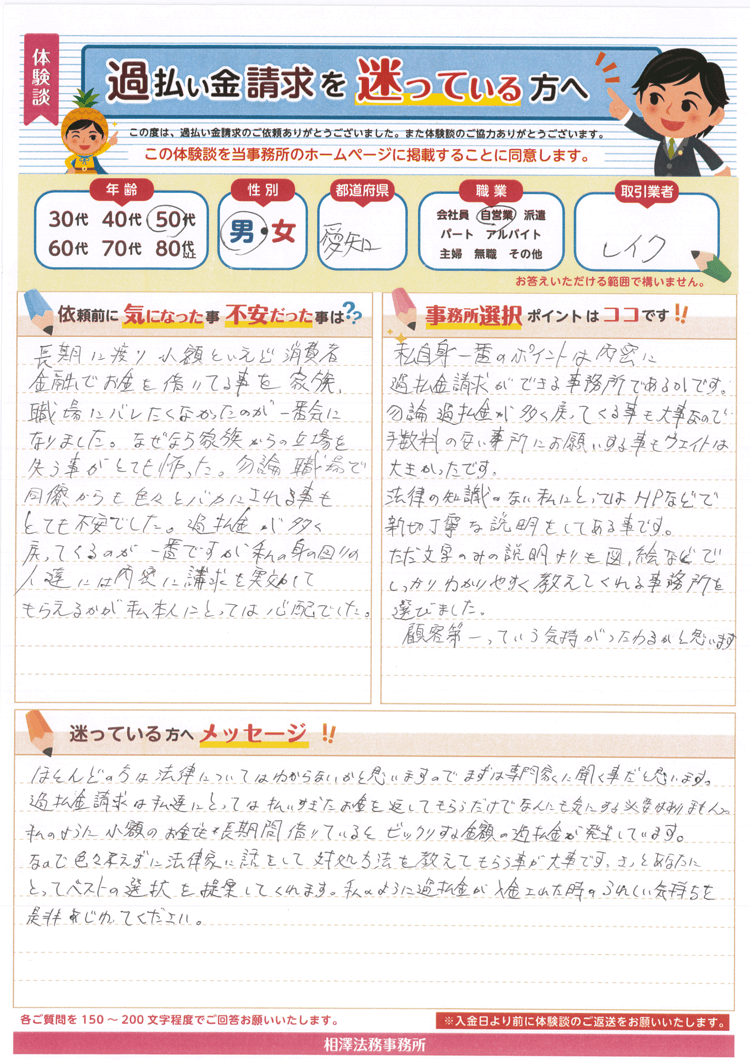 体験談
過払い金請求を迷っている方へ
この度は、過払い金請求のご依頼ありがとうございました。また体験談のご協力ありがとうございます。
この体験談を当事務所のホームページに掲載することに同意します。
年齢
30代 40代 50代
60代 70代 80代以上
性別
男・女
都道府県
愛知
職業
会社員 自営業 派遣
パート アルバイト
主婦 無職 その他
取引業者
レイク
お答えいただける範囲で構いません。
依頼前に気になった事 不安だった事は??
長期に渡り小額といえど消費者
金融でお金を借りてる事を家族、
職場にバレたくなかったのが一番気に
なりました。なぜなら家族からの立場を
失う事がとても怖った。勿論職場で
同僚からも色々とバカにされる事も
とても不安でした。過払金が多く
戻ってくるのが一番ですが私の身の回りの
人達には内密に請求を実効して
もらえるかが私本人にとっては心配でした。
事務所選択ポイントはココです!!
私自身一番のポイントは内密に
過払金請求ができる事務所であるかです。
勿論過払金が多く戻ってくる事も大事なので
手数料の安い事所にお願いする事もウエイトは
大きかったです。
法律の知識のない私にとってはHPなどで
親切丁寧な説明をしてある事です。
ただ文字のみの説明よりも図、絵などで
しっかりわかりやすく教えてくれる事務所を
選びました。
顧客第一っていう気持がつたわるかと思います
迷っている方へメッセージ!!
ほとんどの方は法律についてはわからないかと思いますのでまずは専門家に聞く事だと思います。
過払金請求は私達にとっては払いすぎたお金を返してもらうだけでなんにも気にする必要はありません。
私のように小額のお金でも長期間借りているとビックリする金額の過払金が発生しています。
なので色々考えずに法律家に話をして対処方法を教えてもらう事が大事です。きっとあなたに
とってベストの選択を提案してくれます。私のように過払金が入金された時のうれしい気持ちを
是非あじわってください。
各ご質問を150～200文字程度でご回答お願いいたします。
※入金日より前に体験談のご返送をお願いいたします。
相澤法務事務所